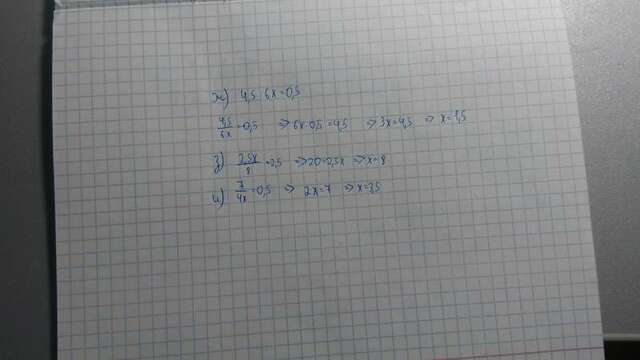 ж) 4,5 : 6x = 0,5
4,5/6x = 0,5 ⇒ 6x·0,5 = 4,5 ⇒ 3x = 4,5 ⇒ x = 1,5
з) 2,5x/8 = 2,5 ⇒ 20 = 2,5x ⇒ x = 8
и) 7/4x = 0,5 ⇒ 2x = 7 ⇒ x = 3,5